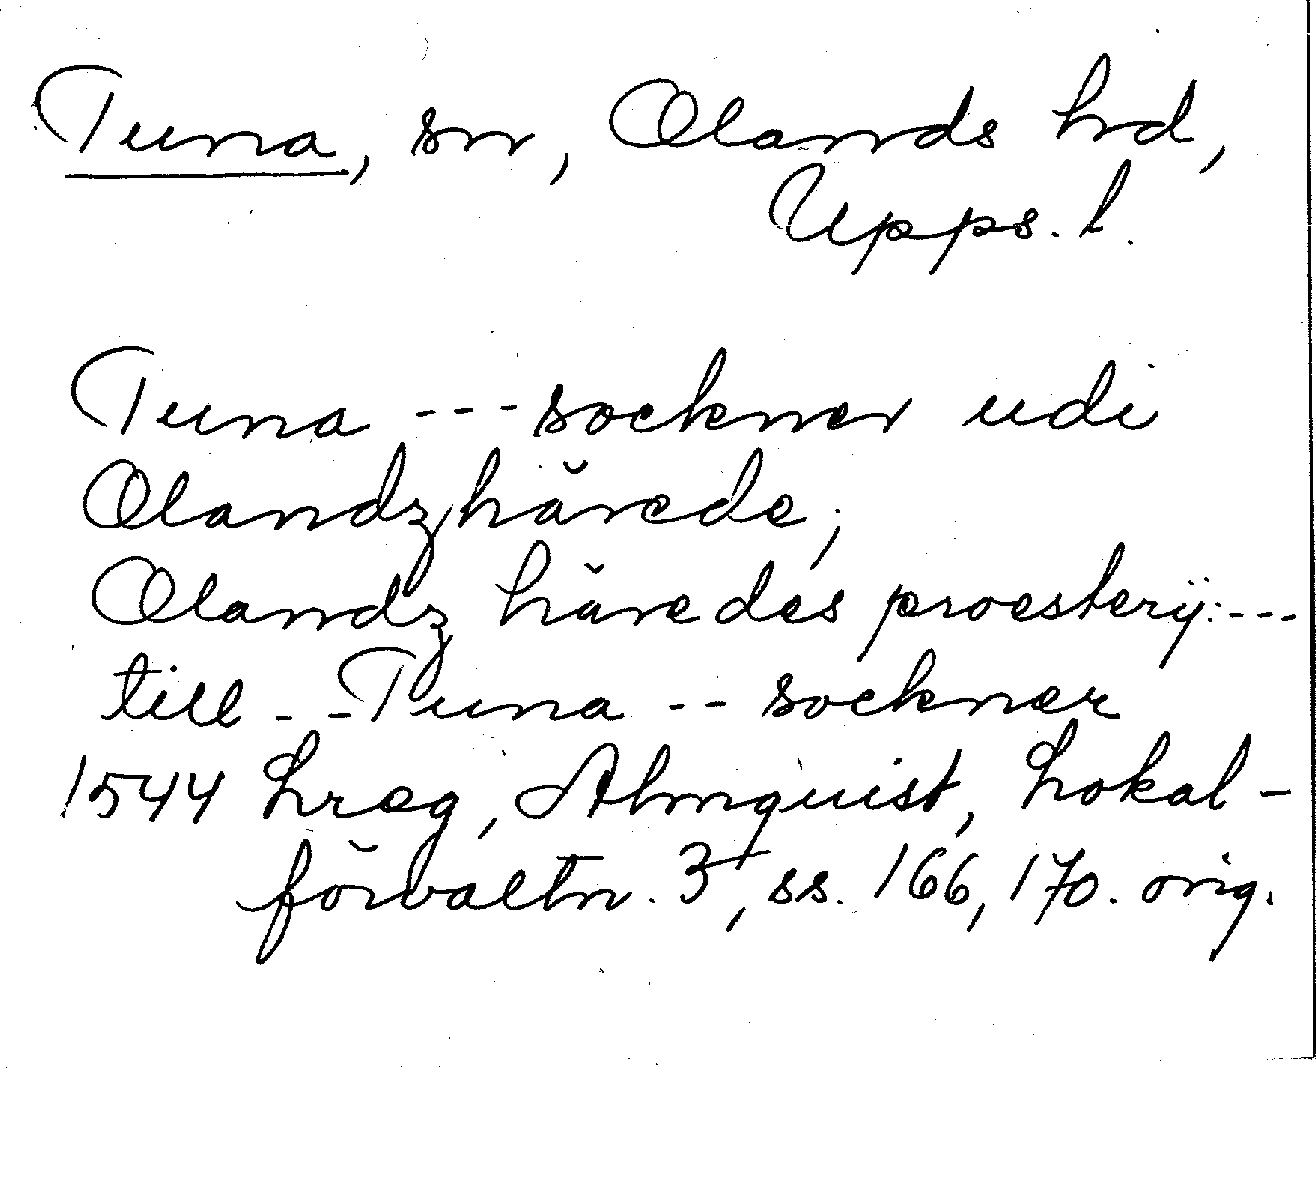 Tuna, sn, Olands hrd,
Upps. l.
Tuna --- sockner udi
Olandzhärede;
Olandz häredes proesterij: ---
till -- Tuna -- sockner
1544 Lreg, Almquist, Lokal-
förvaltn. 3, ss. 166, 170. orig.